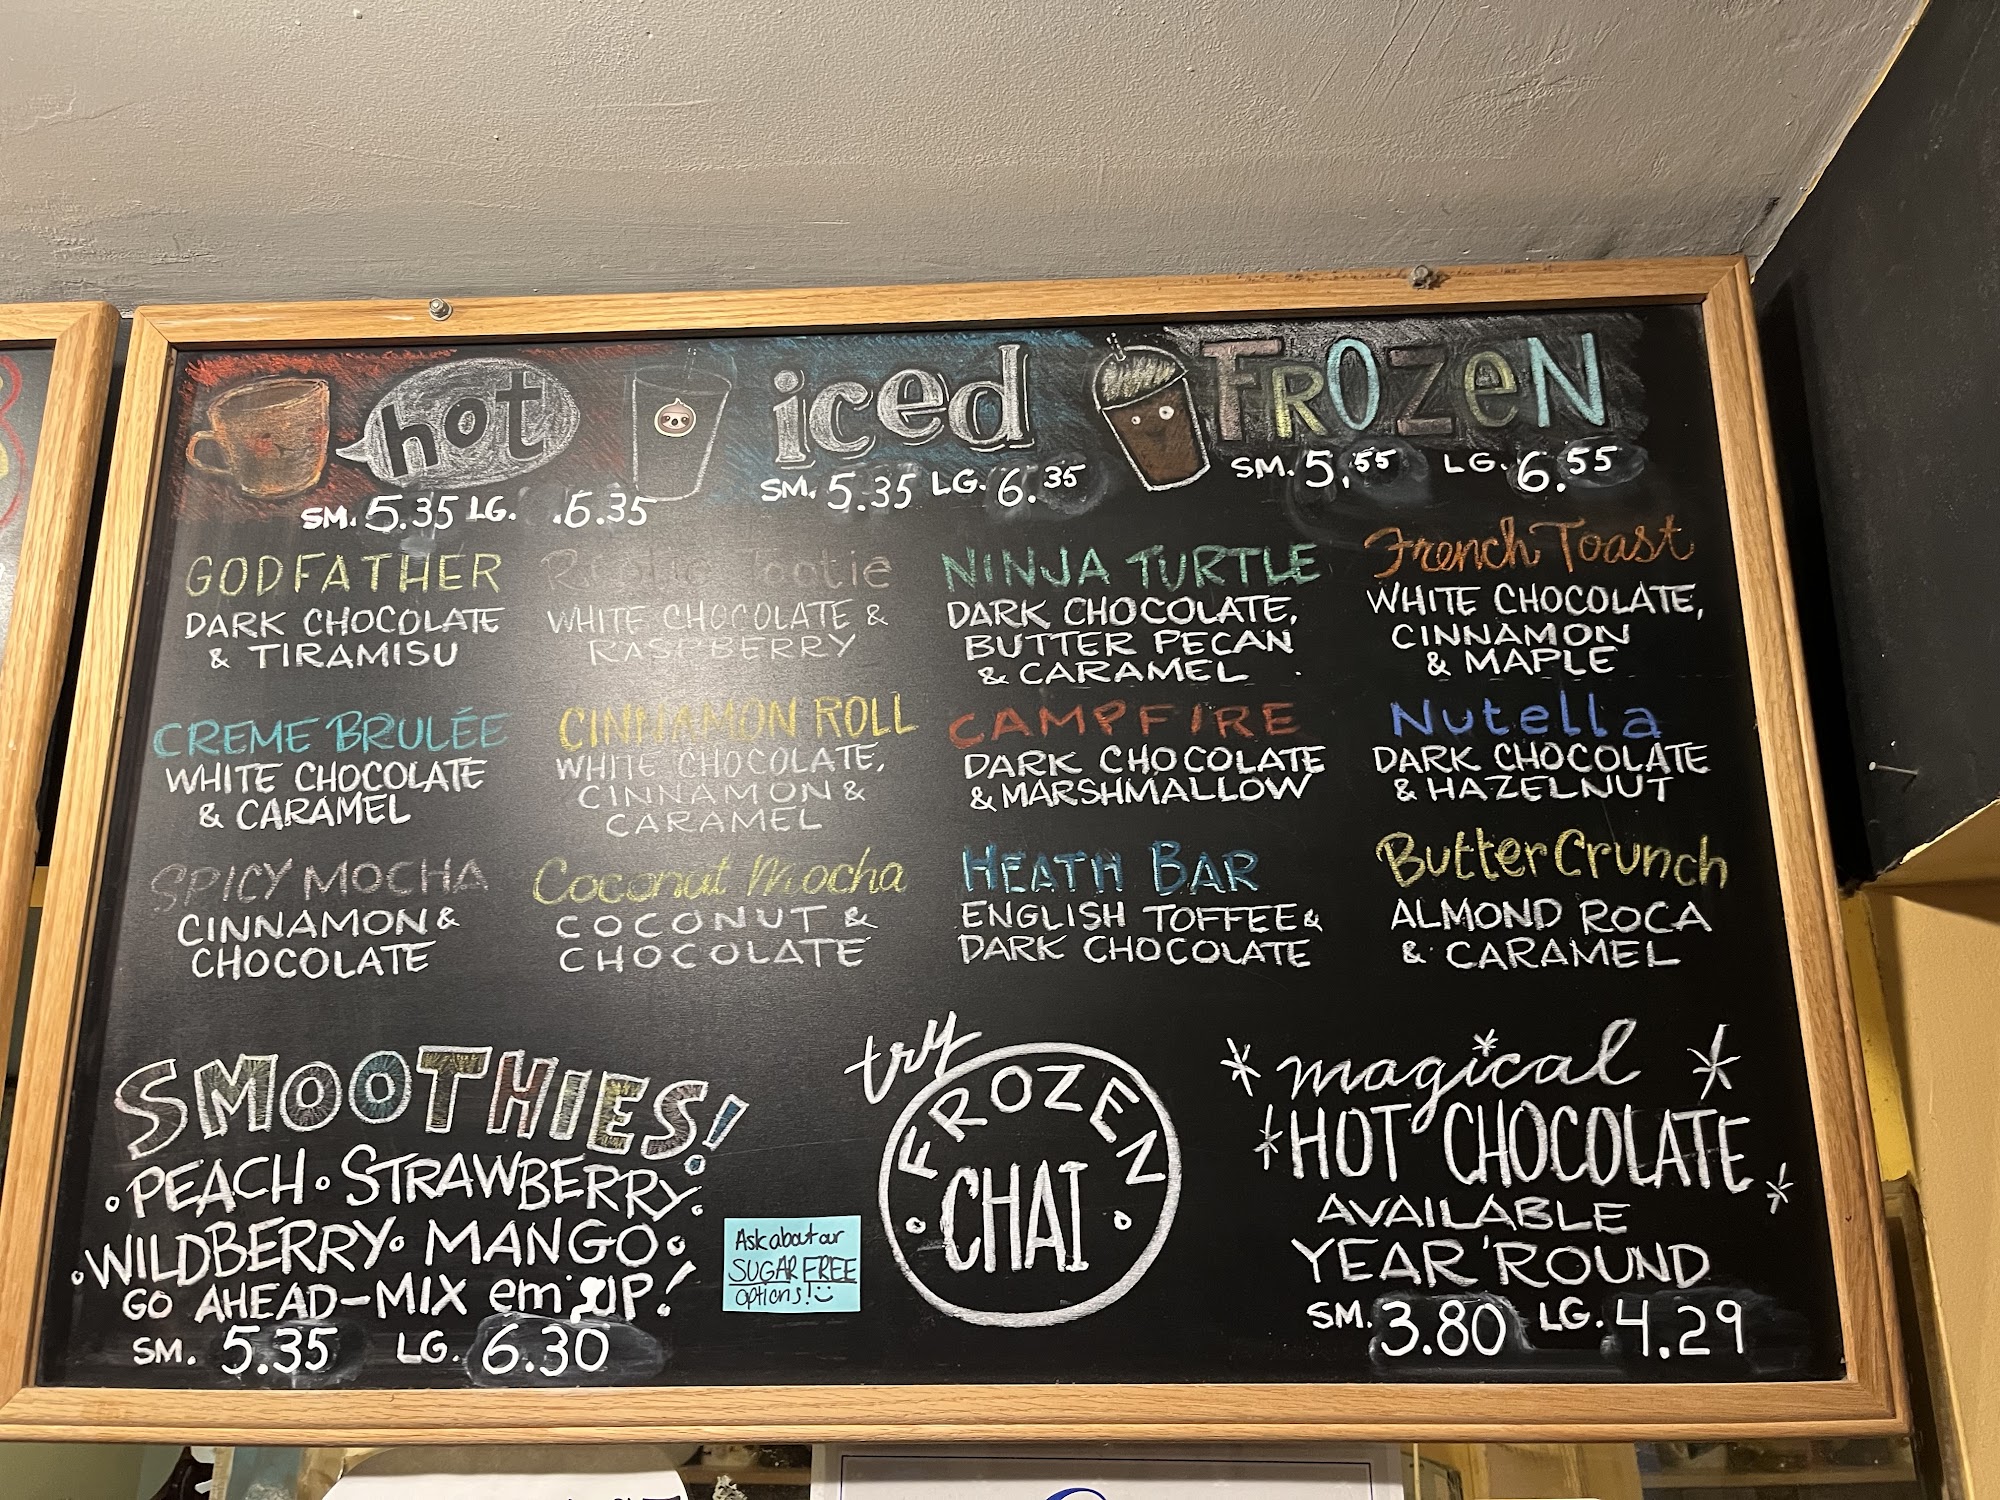 hot
SM. 5.35 LG. 6.35
iced
SM. 5.35 LG. 6.35
FROZEN
SM. 5.55 LG. 6.55
GODFATHER
DARK CHOCOLATE
& TIRAMISU
WHITE CHOCOLATE &
RASPBERRY
NINJA TURTLE
DARK CHOCOLATE,
BUTTER PECAN
& CARAMEL
French Toast
WHITE CHOCOLATE,
CINNAMON
& MAPLE
CREME BRULÉE
WHITE CHOCOLATE
& CARAMEL
CINNAMON ROLL
WHITE CHOCOLATE,
CINNAMON &
CARAMEL
CAMPFIRE
DARK CHOCOLATE
& MARSHMALLOW
Nutella
DARK CHOCOLATE
& HAZELNUT
SPICY MOCHA
CINNAMON &
CHOCOLATE
Coconut Mocha
COCONUT &
CHOCOLATE
HEATH BAR
ENGLISH TOFFEE &
DARK CHOCOLATE
Butter Crunch
ALMOND ROCA
& CARAMEL
SMOOTHIES!
• PEACH • STRAWBERRY •
• WILDBERRY • MANGO •
GO AHEAD-MIX em UP!
SM. 5.35 LG. 6.30
Ask about our
SUGAR FREE
options!
try
FROZEN
• CHAI •
magical
HOT CHOCOLATE
AVAILABLE
YEAR 'ROUND
SM. 3.80 LG. 4.29